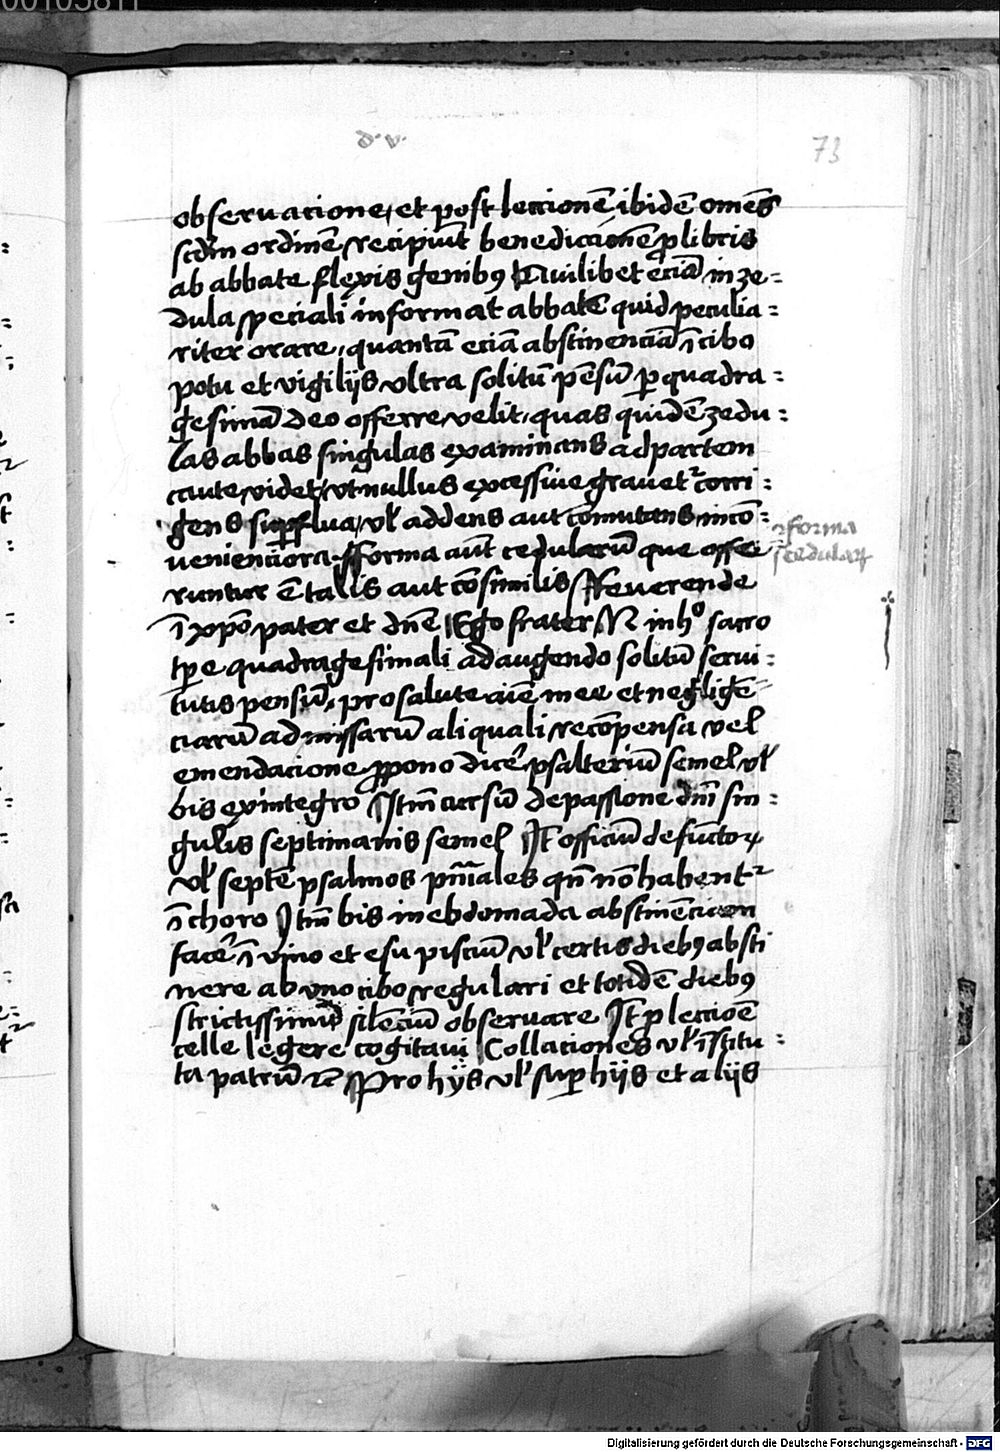 00103811
d. v.
73
obseruacione, et post leccionē ibidē om̄es
scdm ordinē recipiūt benediccionē ꝓ libris
ab abbate flexis genibꝯ Cuilibet eciā in ze=
dula speciali informat abbatē quid peculia=
riter orare, quantā eciā abstinenciā ī cibo
potu et vigilijs vltra solitū pēsū ꝑ quadra=
gesimā deo offerre velit, quas quidē zedu=
las abbas singulas examinans ad partem
caute videt, vt nullus excessiue grauetᷣ corri=
gens suꝑflua, vl̕ addens aut cōmutans incō=
uenienciora. fforma aūt cedularū que offe
runtur ē talis aut cōsimilis Reuerende
ī xp̄o pater et dn̄e Ego frater N in hͦ sacro
tp̄e quadragesimali ad augendo solitū serui=
tutis pensū, pro salute aīe mee et negligē
ciarū admissarū aliquali recōpensa vel
emendacione ꝓpono dicer̄ psalteriū semel vl̕
bis ex integro Itm̄ cursū de passione dn̄i sin=
gulis septimanis semel It̄ officiū defūctoꝝ
vl̕ septē psalmos pn̄iales qn̄ nō habentᷣ
ī choro Itm̄ bis in ebdomada abstinēciam
facer̄ ī vino et esu pisciū vl̕ certis diebꝯ absti
nere ab vno cibo regulari et totidē diebꝯ
strictissimū silēciū obseruare It̄ ꝓ leccioē
celle legere cogitaui Collaciones vl̕ īstitu=
ta patrū ⁊c̄ Pro hijs vl̕ suꝑ hijs et alijs
forma
scedulaꝝ
Digitalisierung gefördert durch die Deutsche Forschungsgemeinschaft - DFG